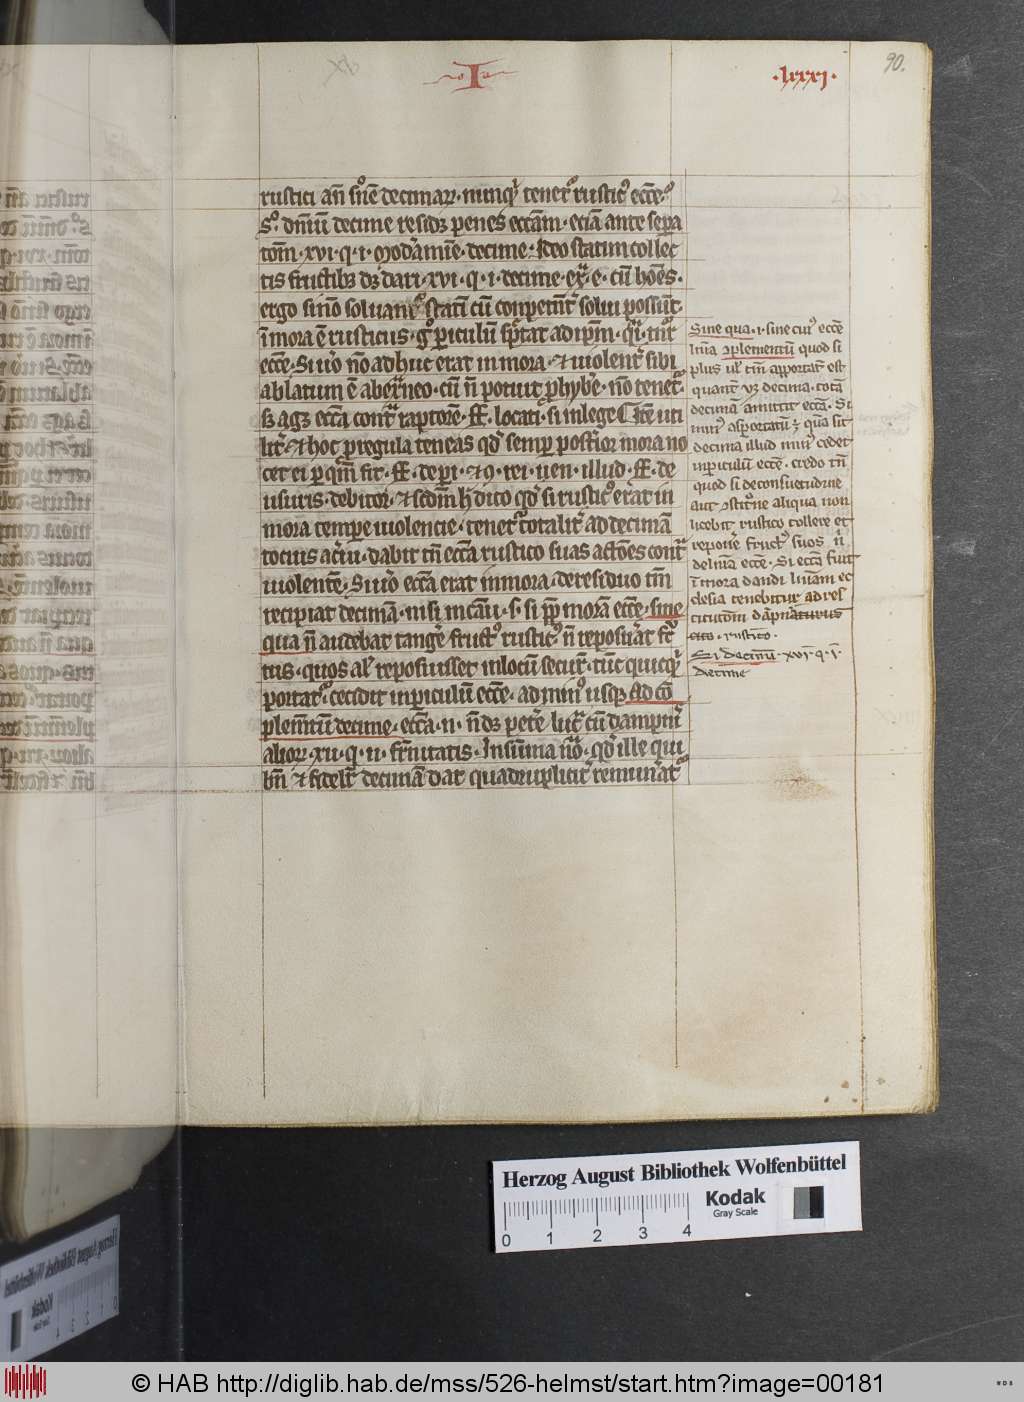 I
·lxxxi·
90.
rustici an̄ decimar̄ · nunq̄ tenet᷒ rustic᷒ ecc̄e
decime residꝫ penes ecc̄am · etiā ante sepa
tōm · xvi · q · i · decime · Ideo statim collec
tis fructibꝫ dꝫ dari · xvi · q · i · decime · ex̄ · e · cū hōes ·
ergo si nō soluant᷒ statī cū conpetent᷒ solui possūt ·
ī mora ē rusticus · g᷒ ꝑiculū sp̄tat ad ip̄m ·
ecc̄e · Si u̾o nō adhuc erat in mora · ⁊ uiolent̾ sibi
ablatum ē cū n̄ potuit ꝓhyb̾e · nō tenet᷒
sꝫ agꝫ ecc̄a cont̾ raptorē · ff · locati · si in lege Itē uti
⁊ hoc ꝓ regula teneas qd̾ semꝑ post̾ior mora no
cet ei ꝑ quē fit · ff · de ꝑi · ⁊ ꝯ · rei · uen · illud · ff · de
usuris · debitor · ⁊ sc̄dm h̾ dico qd̾ si rustic᷒ erat in
mora tempe uiolencie · tenet᷒ totalit̾ ad decimā
tocius · dabit tn̄ ecc̄a rustico suas actōes cont̾
uiolentē · Si u̾o ecc̄a erat in mora · de residuo tm̄
recipiat decimā · nisi in cāu · s · si ꝓp̄ morā ecc̄e · sine
qua n̄ audebat tang̾e fruct᷒ rustic᷒ n̄ reposu̾at
tus · quos al̾ reposuisset in locū secur̄ · tūc quicq̄
portat᷒ · cecidit in ꝑiculū ecc̄e · ad min᷒ usqꝫ ad cō
plemētū decime · ecc̄a · n · n̄ dꝫ pet̾e luc̄ cū dampn̄
alior̄ · xii · q · ii · In sūma no̾ · qd̾ ille qui
bn̄ ⁊ fidelit̾ decimā dat quadruplicit̾ remun̾at᷒
Sine qua · i · sine cui᷒ ecc̄e
ꝯplementū quod si
plus ul̾ tm̄ apportat̄ est
quant̄ decima · totā
decimā amittit ecc̄a · Si
min᷒ asportatū ꝫ qua sit
decima illud min᷒ cedet
in ꝑiculū ecc̄e · credo tn̄
quod si de consuetudine
aut ꝯstituc̄one aliqua non
licebit rustico tollere et
repon̾e fruct᷒ suos n̄
ecc̄e · Si ecc̄a fuit
ī mora dandi ec
clesia tenebitur ad res
titucōm dāpni
rustico ·
Si decimū · xvi · q · i ·
decime
Herzog August Bibliothek Wolfenbüttel
Kodak
Gray Scale
0 1 2 3 4
© HAB http://diglib.hab.de/mss/526-helmst/start.htm?image=00181